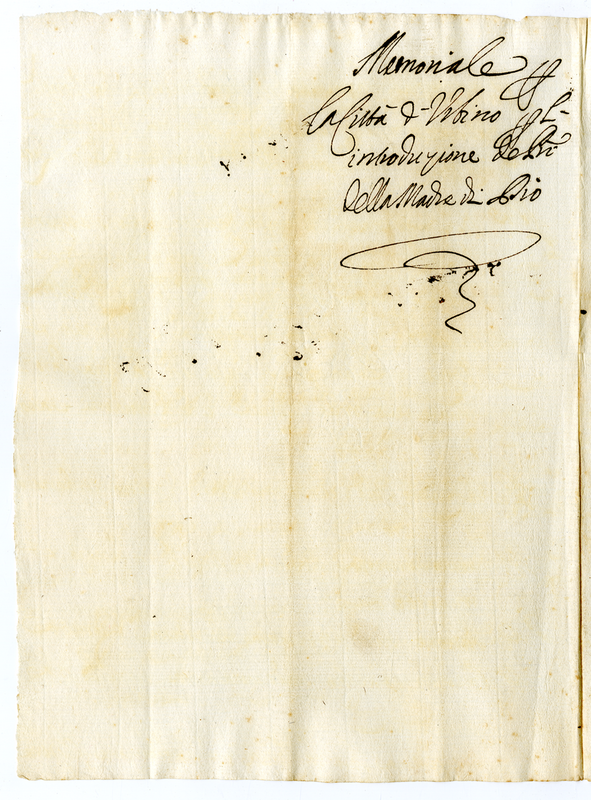 Memoriale p
la Città d'Urbino p l-
introduzione de PP
della Madre di Dio